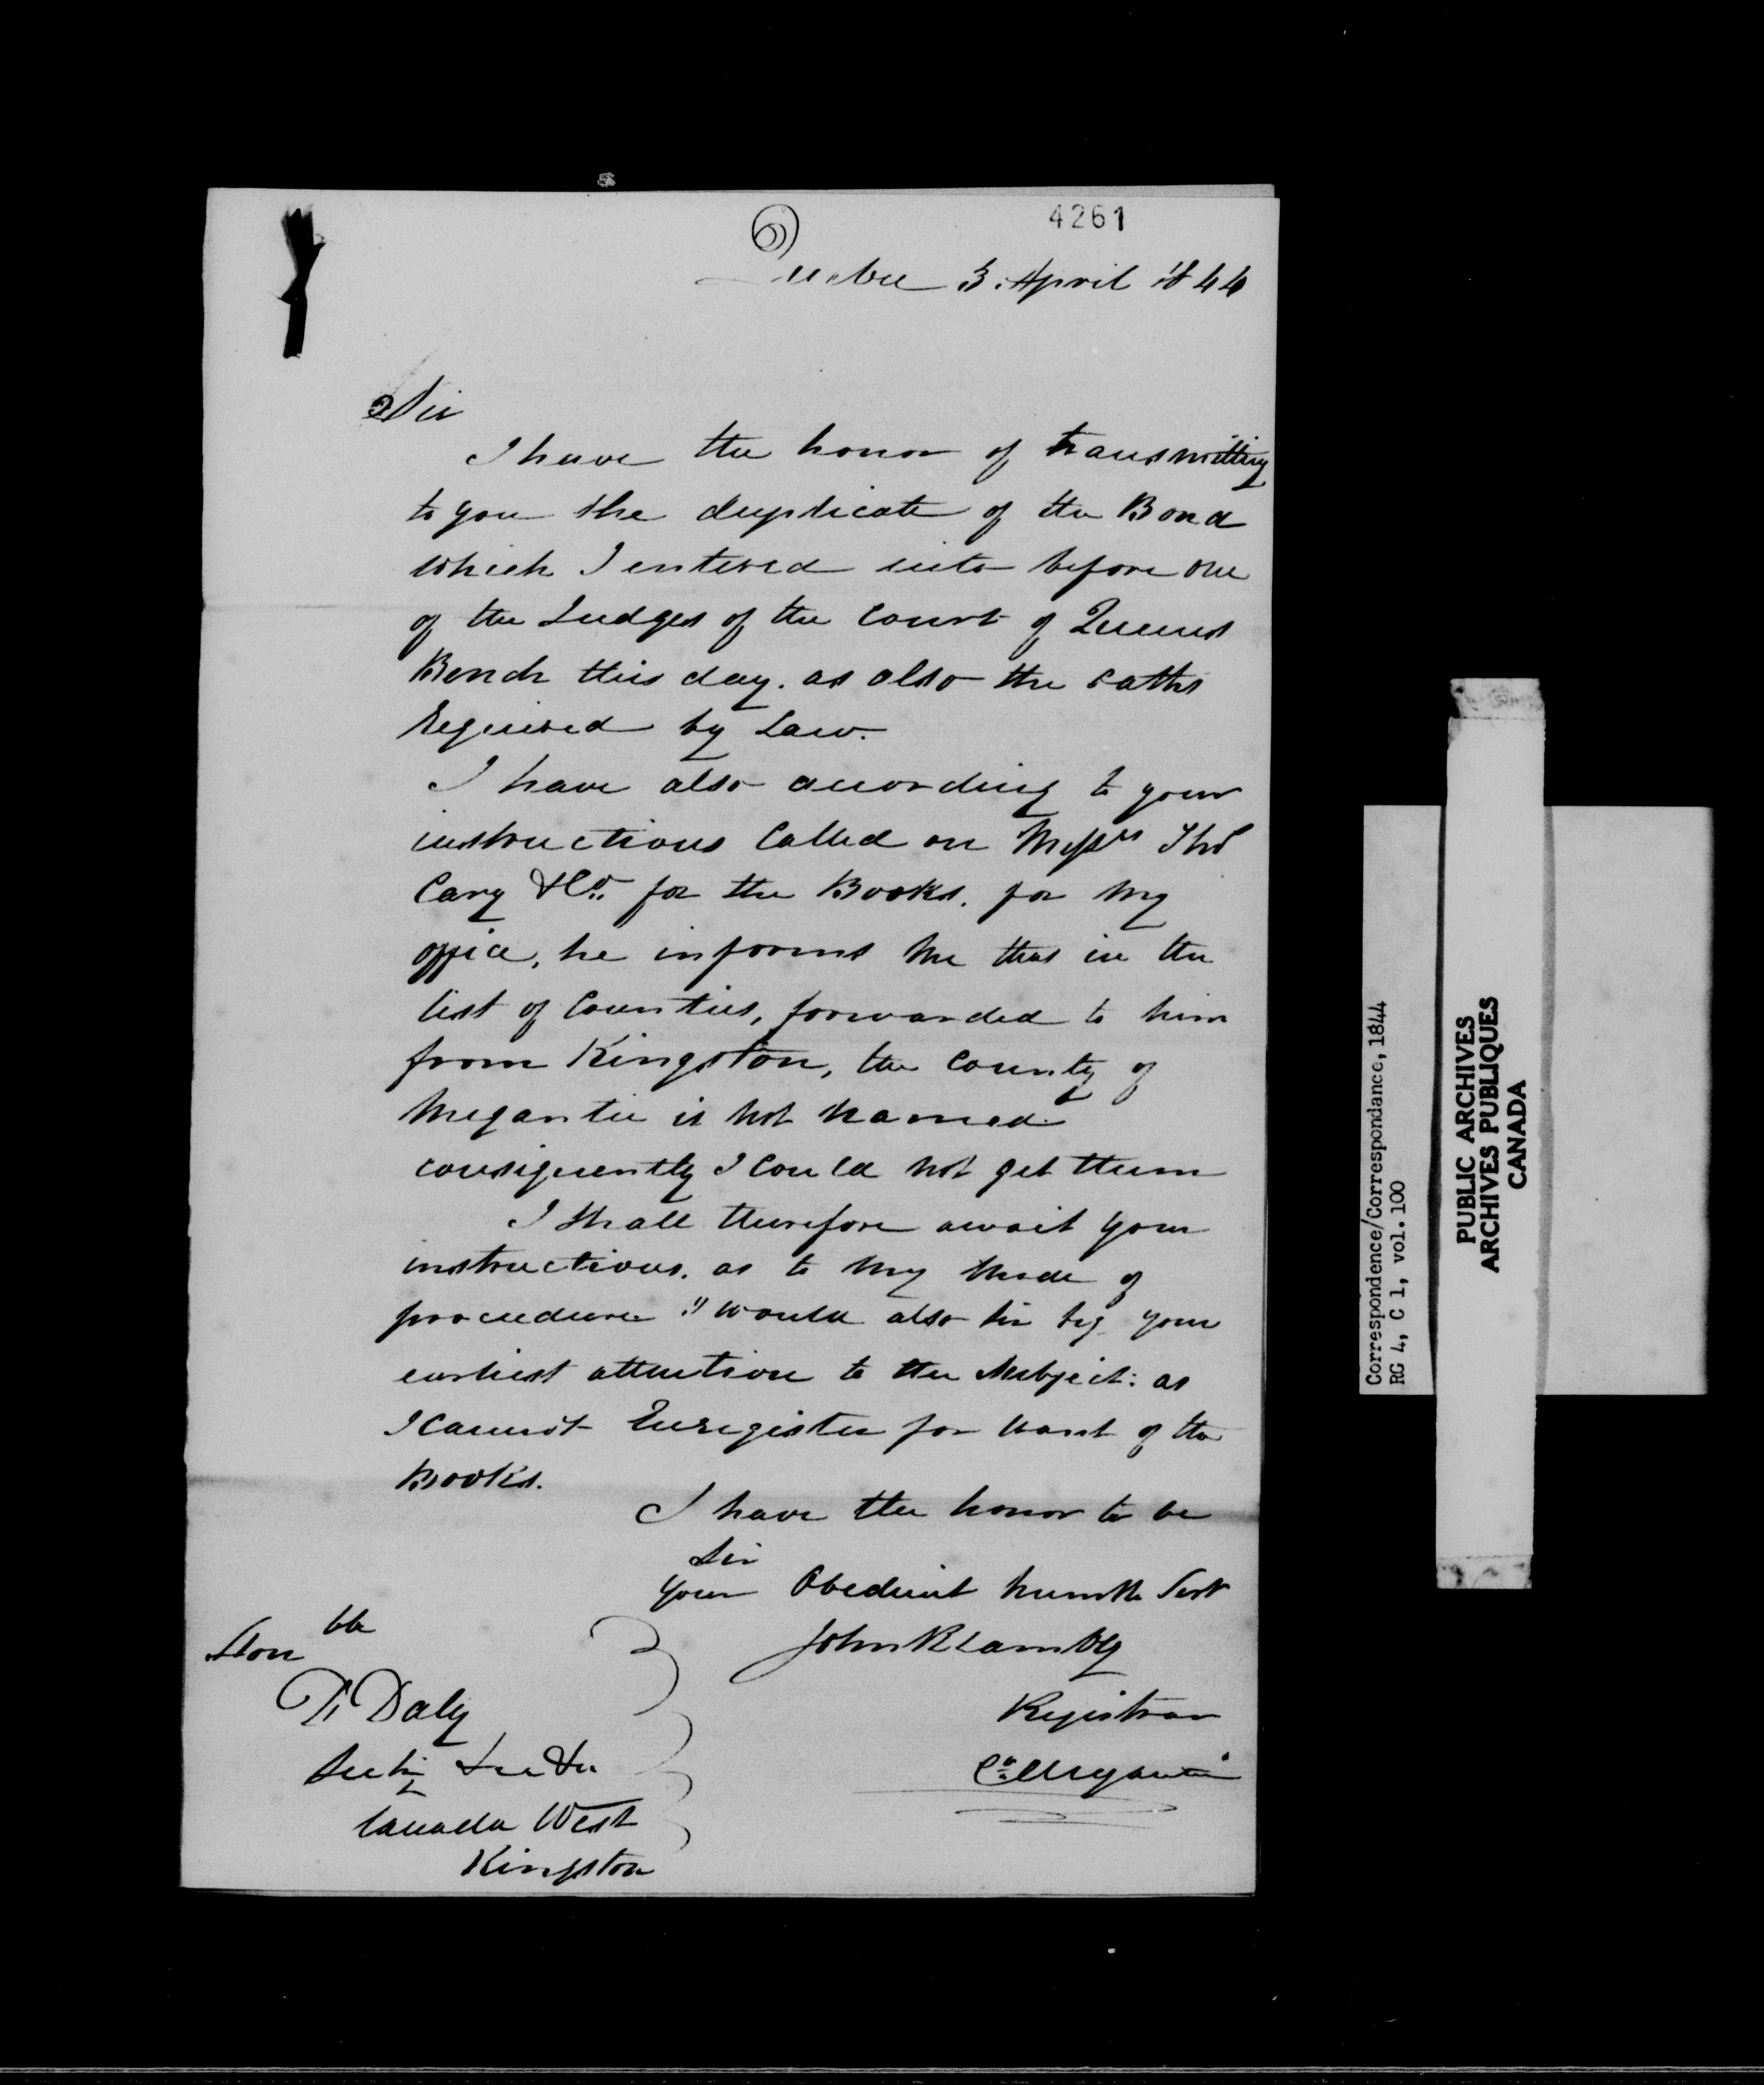 4261
Quebec 3 April 1844
Sir
I have the honor of transmitting
to you the duplicate of the Bond
which I entered into before one
of the Judges of the Court of Queens
Bench this day. as also the oaths
required by Law.
I have also according to your
instructions Called on Messrs Thos
Cary & Co. for the Books. for my
office, he informs me that in the
list of Counties, forwarded to him
from Kingston, the County of
Megantic is not named.
consequently I could not get them
I shall therefore await your
instructions. as to my mode of
procedure I would also Sir beg your
earliest attention to the Subject: as
I cannot Enregister for want of the
Books.
I have the honor to be
Sir
your Obedient humble Servt
John R Lambly
Registrar
Co. Megantic
Honble
D Daly
Canada West
Kingston
Correspondence/Correspondance, 1844
RG 4, C 1, vol. 100
PUBLIC ARCHIVES
ARCHIVES PUBLIQUES
CANADA